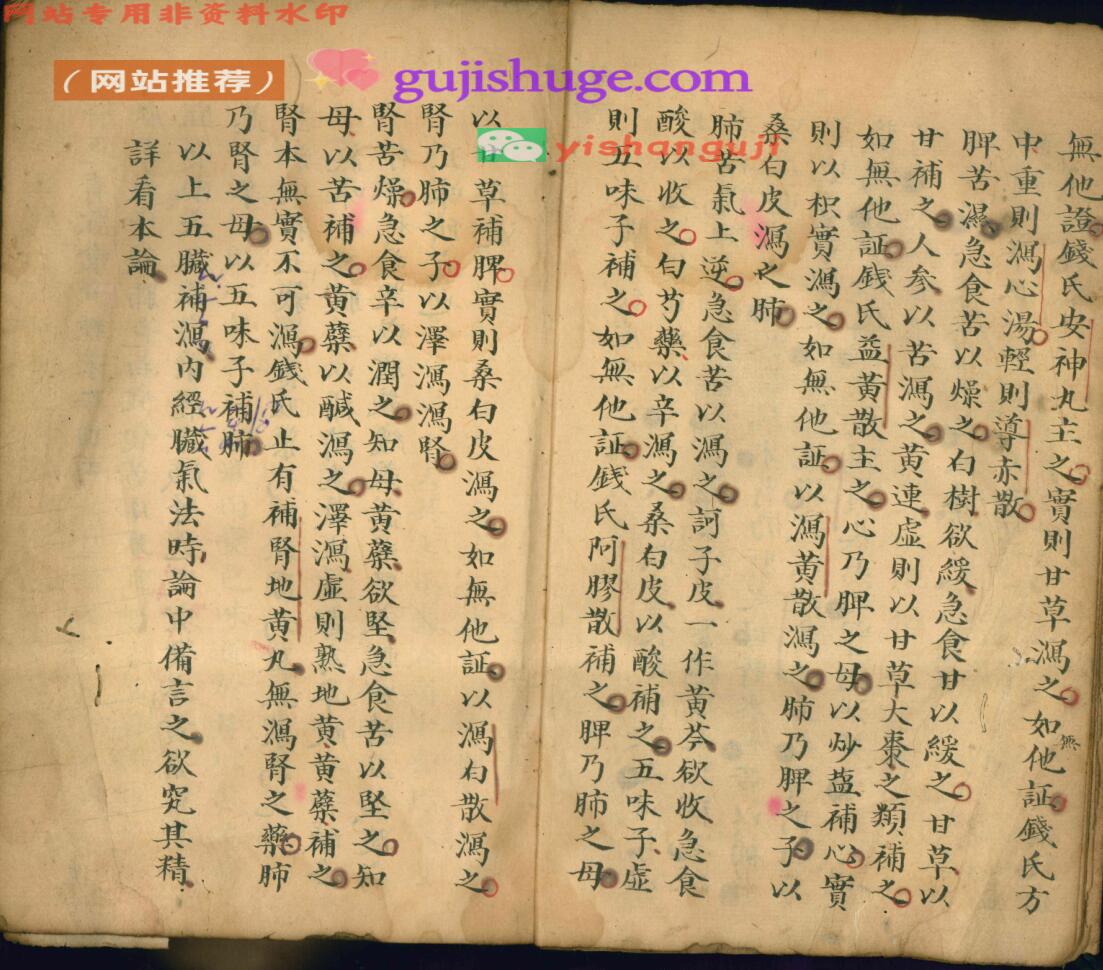 网站专用非资料水印
（网站推荐）
gujishuge.com
yishanguji
無他證錢氏安神丸主之實則甘草瀉之如無他証錢氏方
中重則瀉心湯輕則導赤散
脾苦濕急食苦以燥之白樹欲緩急食甘以緩之甘草以
甘補之人参以苦瀉之黄連虛則以甘草大棗之類補之
如無他証錢氏益黄散主之心乃脾之母以炒盐補心實
則以枳實瀉之如無他証以瀉黄散瀉之肺乃脾之子以
桑白皮瀉之肺
肺苦氣上逆急食苦以瀉之訶子皮一作黄芩欲收急食
酸以收之白芍藥以辛瀉之桑白皮以酸補之五味子虛
則五味子補之如無他証錢氏阿膠散補之脾乃肺之母
以甘草補脾實則桑白皮瀉之如無他証以瀉白散瀉之
腎乃肺之子以澤瀉瀉腎
腎苦燥急食辛以潤之知母黄蘗欲堅急食苦以堅之知
母以苦補之黄蘗以鹹瀉之澤瀉虛則熟地黄黄蘗補之
腎本無實不可瀉錢氏止有補腎地黄丸無瀉腎之藥肺
乃腎之母以五味子補肺
以上五臟補瀉内經臟氣法時論中備言之欲究其精
詳看本論